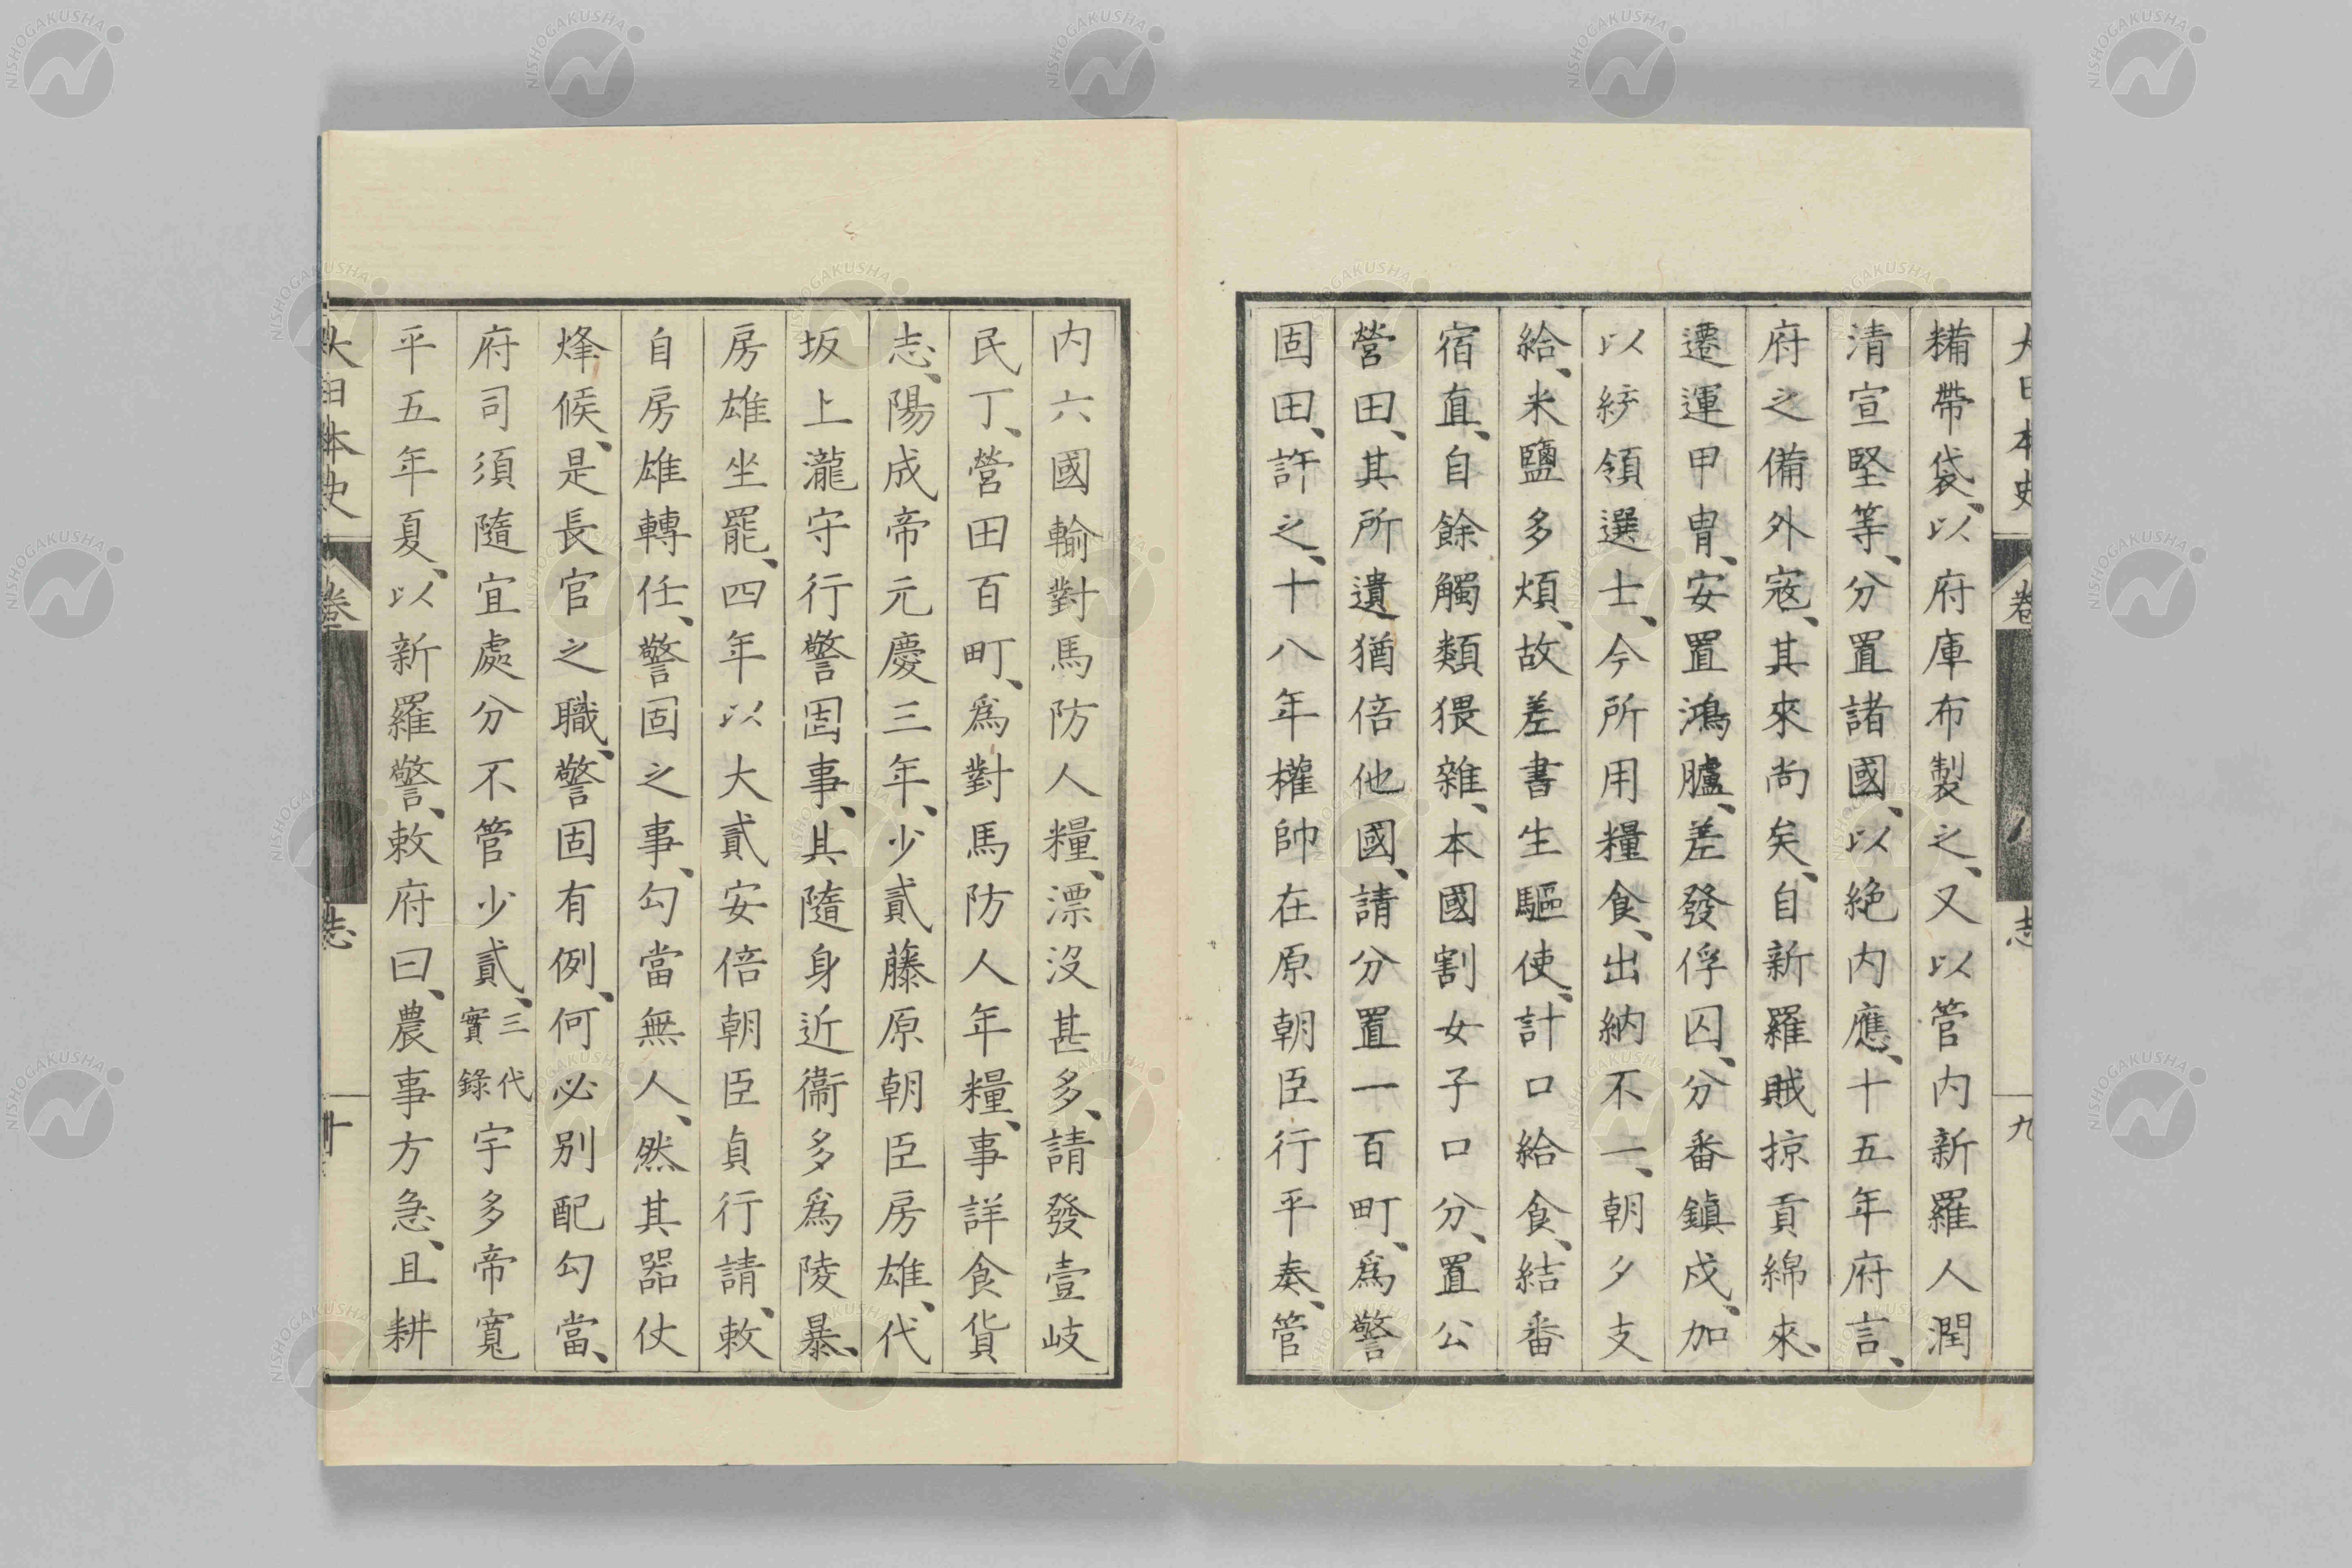 糒帶袋、以府庫布製之、又以管内新羅人潤
清宣堅等、分置諸國、以絶内應、十五年府言、
府之備外寇、其來尚矣、自新羅賊掠貢綿來、
遷運甲冑、安置鴻臚、差發俘囚、分番鎮戍、加
以綂領選士、今所用糧食、出納不一、朝夕支
給、米鹽多煩、故差書生驅使、計口給食、結番
宿直、自餘觸類猥雜、本國割女子口分、置公
營田、其所遺猶倍他國、請分置一百町、爲警
固田、許之、十八年權帥在原朝臣行平奏、管
内六國輸對馬防人糧、漂沒甚多、請發壹岐
民丁、營田百町、爲對馬防人年糧、事詳食貨
志、陽成帝元慶三年、少貳藤原朝臣房雄、代
坂上瀧守行警固事、其隨身近衞多爲陵暴、
房雄坐罷、四年以大貳安倍朝臣貞行請、敕
自房雄轉任、警固之事、勾當無人、然其器仗
烽候、是長官之職、警固有例、何必別配勾當、
府司須隨宜處分不管少貳、三代實錄宇多帝寬
平五年夏、以新羅警、敕府曰、農事方急、且耕
大日本史
卷
志
九
大日本史
卷
志
十
NISHOGAKUSHA